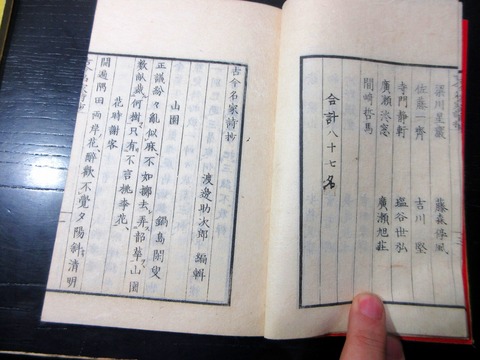 梁川星巖　藤森淳風
佐藤一齊　吉川堅
寺門靜軒　塩谷世弘
廣瀬淡窓　廣瀬旭莊
間﨑哲馬
合計八十七名
古今名家詩抄
渡邊助次郎 編輯
山園
鍋島閑叟
正議紛々亂似麻、不如擲去弄韶華、山園
數畝幾何樹、只有不言桃李花、
花時謝客
開遍隅田兩岸花、醉歡不覺夕陽斜、清明